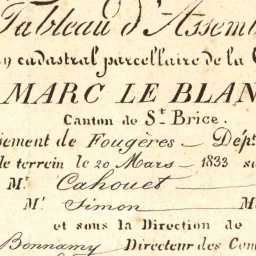 Tableau d'Assem
n cadastral parcellaire de la
MARC LE BLAN
Canton de St. Brice.
sement de Fougères — Dépt
le terrein le 20 Mars — 1833 s
Mr. Cahouet
Mr. Simon M
et sous la Direction de
Bonnamy Directeur des Con